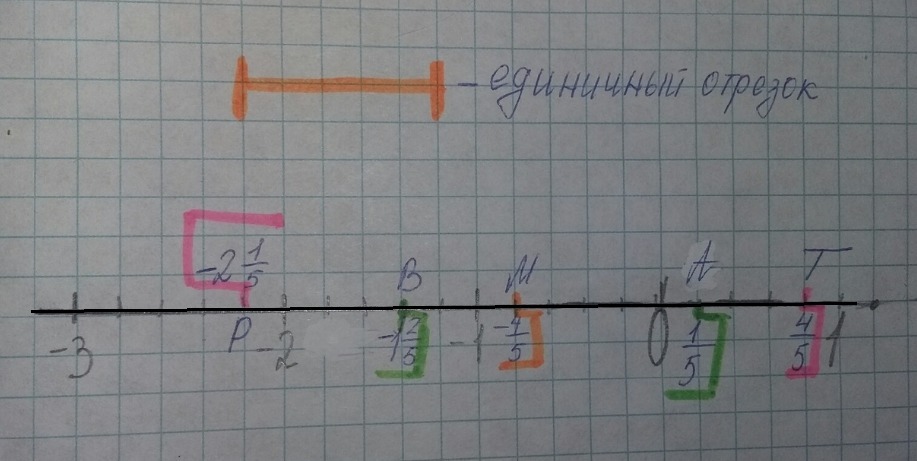 – единичный отрезок
-2 1/5 B M A T
-3 P -2 -1 2/5 -1 -4/5 0 1/5 4/5 1